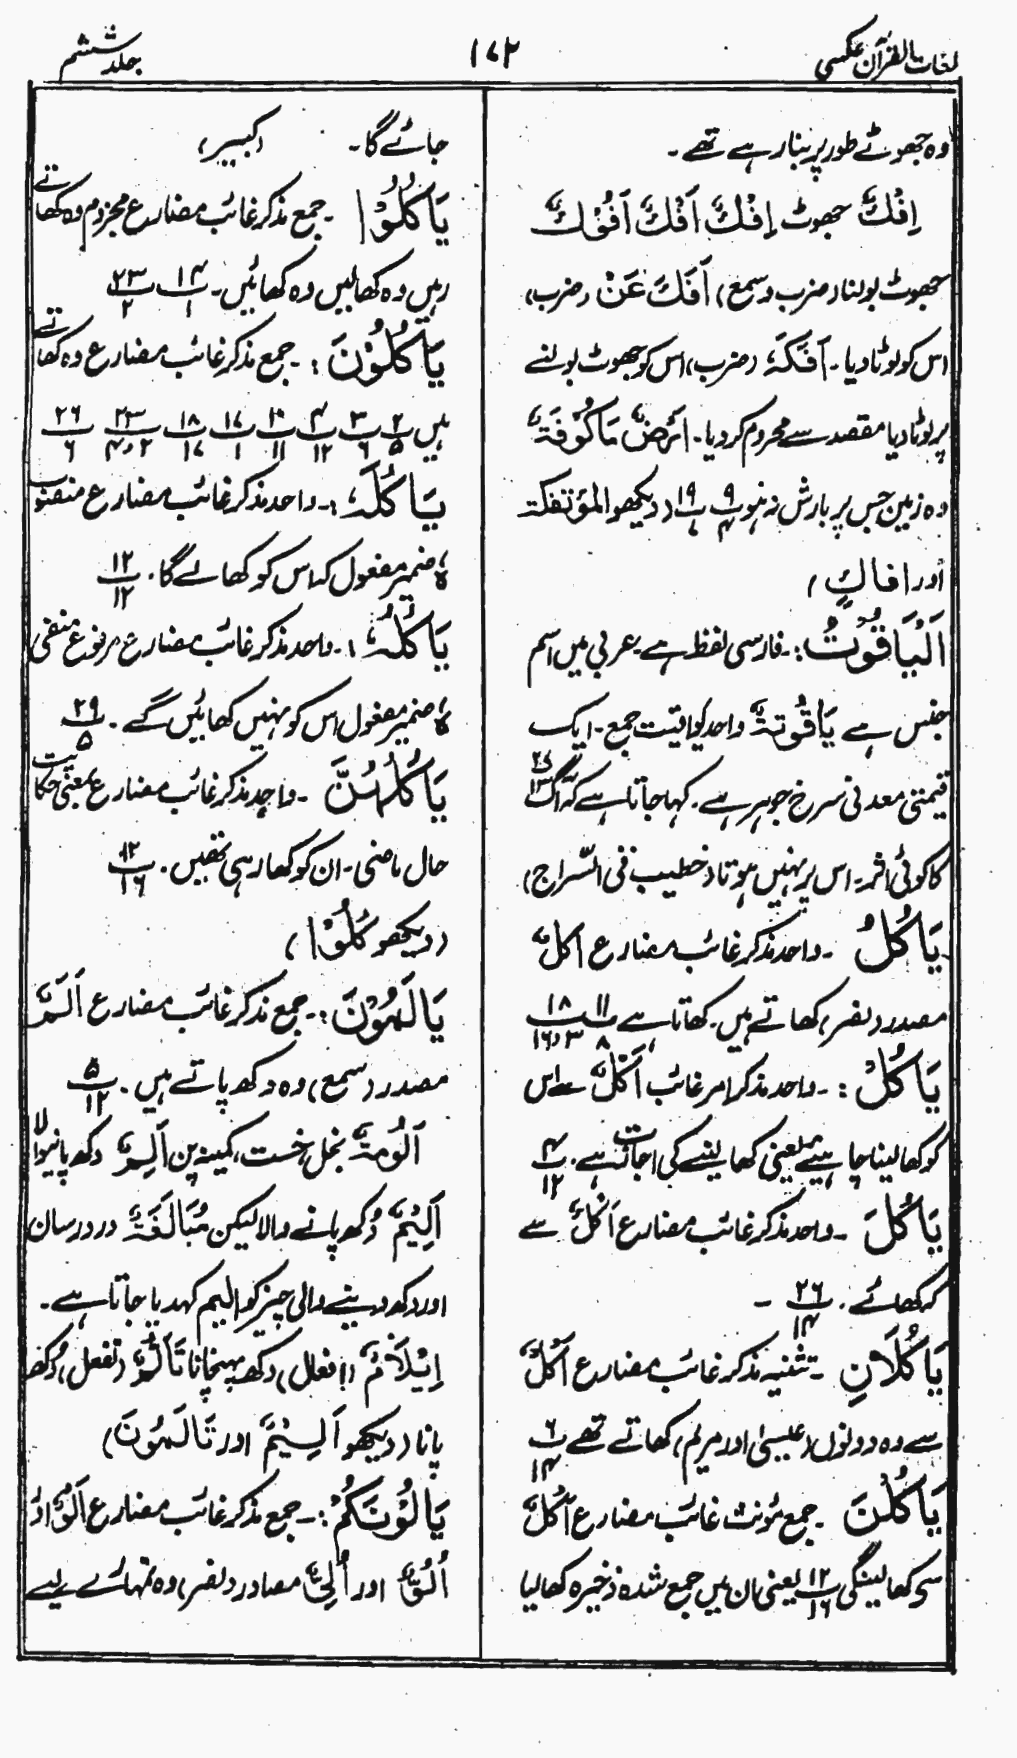 لغات القرآن عکسی
۱۷۲
جلد ششم
وہ جھوٹے طور پر بنا رہے تھے۔
اِفْكٌ جھوٹ اِفْكٌ اَفْكٌ اَفَكٌ اُفُوْكٌ
جھوٹ بولنا (ضرب و سمع) اَفَكَ عَنْ (ضرب)
اس کو لوٹا دیا۔ اَفَكَهٗ (ضرب) اس کو جھوٹ بولنے
پر لوٹا دیا مقصد سے محروم کر دیا۔ اَرْضٌ مَاْكُوْفَةٌ
وہ زمین جس پر بارش نہ ہو ۹/۴ ۱۹/۷ (دیکھو المؤتفکۃ
اور افاكٍ)
اَلْيَاقُوْتُ :۔ فارسی لفظ ہے عربی میں اسم
جنس ہے يَاقُوْتَةٌ واحد یواقیت جمع۔ ایک
قیمتی معدنی سرخ جوہر ہے۔ کہا جاتا ہے کہ آگ ۲۷/۱۳
کا کوئی اثر اس پر نہیں ہوتا (خطیب فی السراج)
يَاْكُلُ ۔ واحد مذکر غائب مضارع اَكْلٌ
مصدر (نصر) کھاتے ہیں۔ کھاتا ہے ۱۱/۸ ۱۸/۳ و ۱۶
يَاْكُلْ :۔ واحد مذکر امر غائب اَكْلٌ سے اس
کو کھا لینا چاہیے یعنی کھا لینے کی اجازت ہے۔ ۴/۱۲
يَاْكُلَ ۔ واحد مذکر غائب مضارع اَكْلٌ سے
کہ کھائے۔ ۲۶/۱۴ ۔
يَاْكُلَانِ ۔ تثنیہ مذکر غائب مضارع اَكْلٌ
سے وہ دونوں (عیسیٰ اور مریم) کھاتے تھے ۶/۱۴
يَاْكُلْنَ ۔ جمع مؤنث غائب مضارع اَكْلٌ
سے کھا لینگی ۱۲/۱۶ یعنی ان میں جمع شدہ ذخیرہ کھا لیا
جائے گا۔ (کبیر)
يَاْكُلُوْا ۔ جمع مذکر غائب مضارع مجزوم وہ کھاتے
رہیں وہ کھالیں وہ کھائیں۔ ۱۴/۱ ۲۳/۲
يَاْكُلُوْنَ :۔ جمع مذکر غائب مضارع وہ کھاتے
ہیں ۲/۵ ۳/۶ ۴/۱۲ ۱۰/۱۱ ۱۷/۱ ۱۸/۱۷ ۲۳/۲ و ۴ ۲۶/۶
يَاْكُلَهٗ :۔ واحد مذکر غائب مضارع منصوب
هٗ ضمیر مفعول کہ اس کو کھا لے گا۔ ۱۲/۱۲
يَاْكُلُهٗ :۔ واحد مذکر غائب مضارع مرفوع منفی
هٗ ضمیر مفعول اس کو نہیں کھائیں گے۔ ۲۹/۵
يَاْكُلُهُنَّ ۔ واحد مذکر غائب مضارع بمعنی حکایت
حال ماضی۔ ان کو کھا رہی تھیں۔ ۱۲/۱۶
(دیکھو كُلُوْا)
يَاْلَمُوْنَ :۔ جمع مذکر غائب مضارع اَلَمٌ
مصدر (سمع) وہ دکھ پاتے ہیں۔ ۵/۱۲
اَلُوْمَةٌ بخل، خست، کمینہ پن اَلِمٌ دکھ پانیوالا
اَلِيْمٌ دُکھ پانے والا لیکن مُبَالَغَةً درد رسان
اور دکھ دینے والی چیز کو الیم کہدیا جاتا ہے۔
اِيْلَامٌ (افعال) دکھ پہنچانا تَاَلُّمٌ (تفعل) دُکھ
پانا (دیکھو اَلِيْمٌ اور تَاْلَمُوْنَ)
يَاْلُوْنَكُمْ :۔ جمع مذکر غائب مضارع اَلْوٌ اور
اُلُوٌّ اور اُلِيٌّ مصادر (نصر) وہ تمہارے لیے